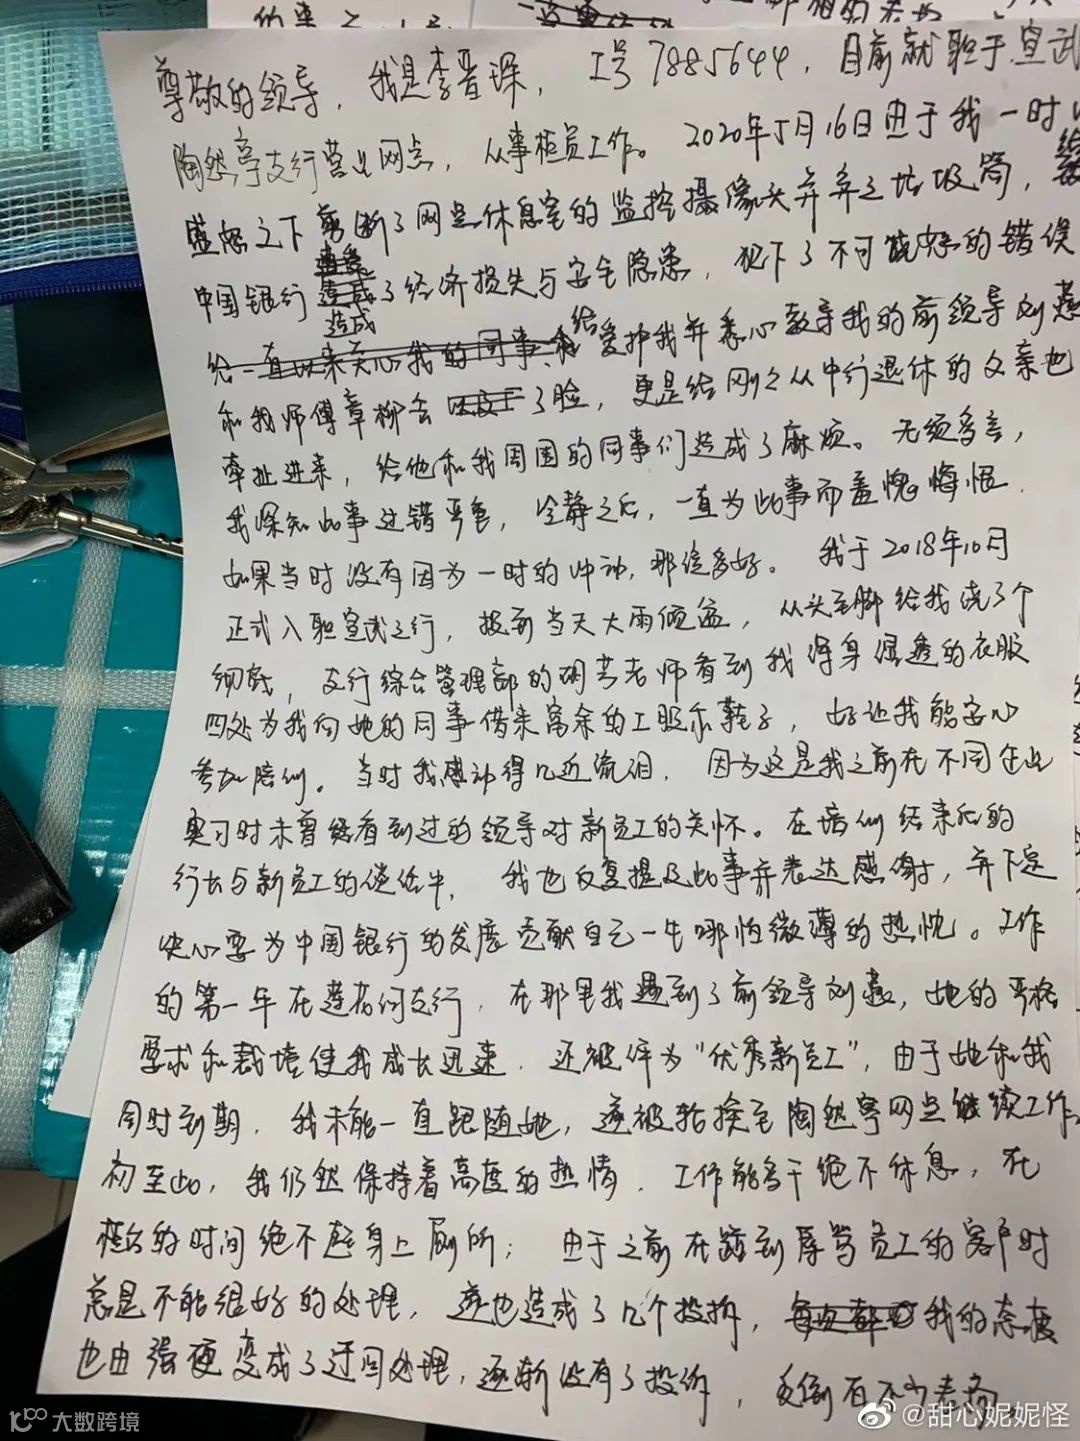 尊敬的领导，我是李晋琛，工号7885644，目前就职于宣武
陶然亭支行营业网点，从事柜员工作。2020年5月16日由于我一时
盛怒之下剪断了网点休息室的监控摄像头并弃之垃圾筒，给
中国银行造成了经济损失与安全隐患，犯下了不可饶恕的错误
给一直以来关心我的同事、和给爱护我并悉心教导我的前领导刘燕
和我师傅章柳去了脸，更是给刚刚从中行退休的父亲也
牵扯进来，给他和我周围的同事们造成了麻烦。无须多言，
我深知此事过错严重，冷静之后，一直为此事而羞愧悔恨.
如果当时没有因为一时的冲动，那该多好。我于2018年10月
正式入职宣武支行，报到当天大雨倾盆，从头至脚给我浇了个
彻底，支行综合管理部的胡芳老师看到我浑身湿透的衣服
四处为我向她的同事借来富余的工服和鞋子，好让我能安心
参加培训。当时我感动得几近流泪，因为这是我之前在不同企业
实习时未曾经看到过的领导对新员工的关怀。在培训结束后的
行长与新员工的谈话中，我也反复提及此事并表达感谢，并下定
决心要为中国银行的发展贡献自己一生哪怕微薄的热忱。工作
的第一年在莲花河支行，在那里我遇到了前领导刘燕，她的严格
要求和栽培使我成长迅速，还被评为“优秀新员工”，由于她和我
同时到期，我未能一直跟随她，遂被轮换至陶然亭网点继续工作。
初至此，我仍然保持着高度的热情，工作能多干绝不休息，在
柜台的时间绝不起身上厕所；由于之前在踫到辱骂员工的客户时
总是不能很好的处理，遂也造成了几个投拆，我的态度
也由强硬变成了迂回处理，逐渐没有了投诉，反倒有不少老客
大数跨境
@甜心妮妮怪